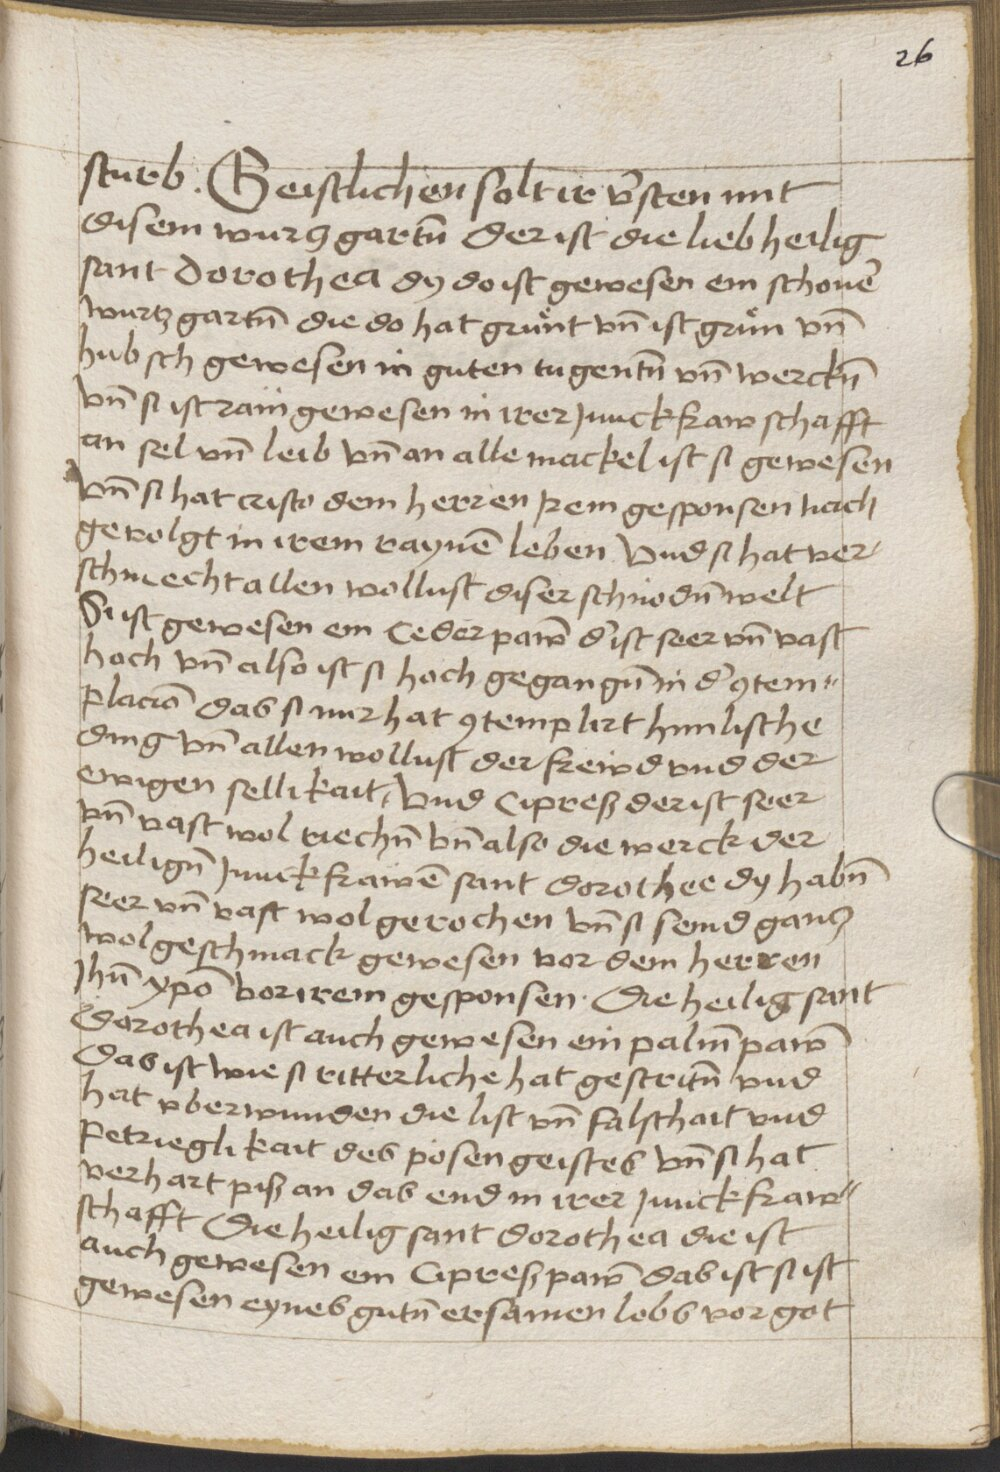 26
sturb. Geistlichen solt ir v̄sten mit
disem wurtzgartn̄ der ist die lieb heilig
sant dorothea dy do ist gewesen ein schoner̄
wurtzgartn̄ die do hat grůnt vn̄ ist grůn vn̄
hubsch gewesen in guten tugentn̄ vn̄ werckn̄
vn̄ si ist rain gewesen in irer Junckfrawschafft
an sel vn̄ leib vn̄ an alle mackel ist si gewesen
vn̄ si hat cristo dem herren Irem gesponsen nach
gevolgt in irem raynē leben Vnd si hat ver-
schmecht allen wollust diser schnodn̄ welt
Si ist gewesen ein Ceder paw̄ d' ist seer vn̄ vast
hoch vn̄ also ist si hoch gegangn̄ in d' ꝯtem-
placiō das si nur hat ꝯtemplirt himlische
ding vn̄ allen wollust der frewd vnd der
ewigen sellikait, Vnd Cipreß der ist seer
vn̄ vast wol riechn̄ vn̄ also die werck der
heilign̄ Junckfrawē sant dorothee dy habn̄
seer vn̄ vast wol gerochen vn̄ si seind gantz
wolgeschmack gewesen vor dem herren
Jhū xp̄o vor irem gesponsen. Die heilig sant
dorothea ist auch gewesen ein palm̄ paw̄
das ist wie si ritterliche hat gestritn̄ vnd
hat vberwunden die list vn̄ falschait vnd
petrieglikait des posen geistes vn̄ si hat
verhart piß an das end in irer Junckfraw-
schafft Die heilig sant dorothea die ist
auch gewesen ein Cipreß paw̄ das ist si ist
gewesen eynes gutn̄ ersamen lobs vor got